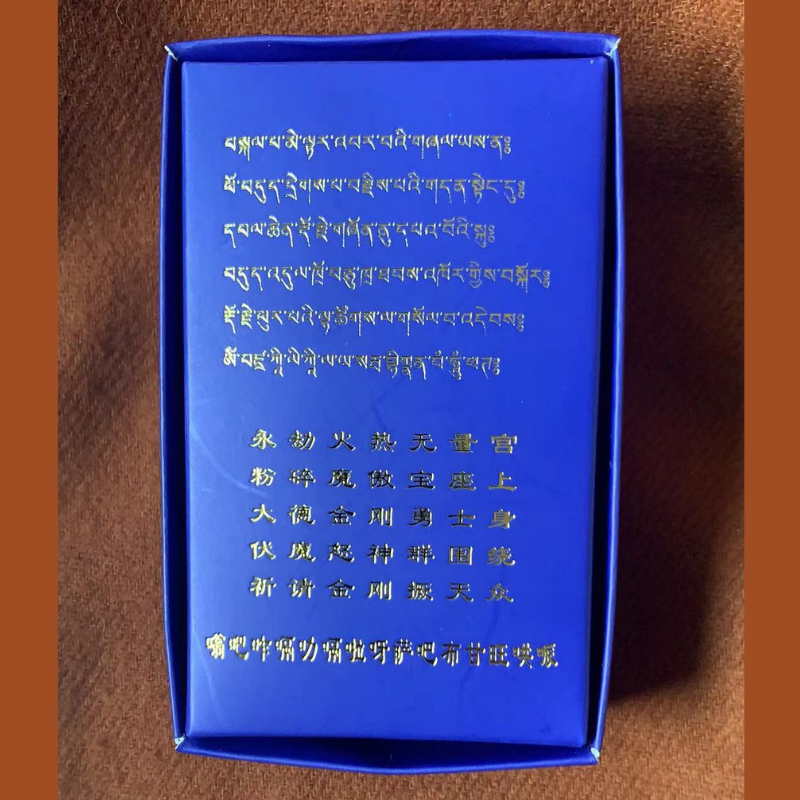 བསྐལ་པ་མེ་ལྟར་འབར་བའི་གཞལ་ཡས་ན༔
ཕོ་བདུད་དྲེགས་པ་བརྫིས་པའི་གདན་སྟེང་དུ༔
དཔལ་ཆེན་རྡོ་རྗེ་གཞོན་ནུ་དཔའ་བོའི་སྐུ༔
བདུད་འདུལ་ཁྲོ་བཅུ་ཁྲ་ཐབས་འཁོར་གྱིས་བསྐོར༔
རྡོ་རྗེ་ཕུར་པའི་ལྷ་ཚོགས་ལ་གསོལ་བ་འདེབས༔
ཨོཾ་བཛྲ་ཀཱི་ལི་ཀཱི་ལ་ཡ་སརྦ་བིགྷྣན་བཾ་ཧཱུྃ་ཕཊ༔
永劫火热无量宫
粉碎魔傲宝座上
大德金刚勇士身
伏魔怒神群围绕
祈请金刚橛天众
嗡吧咋嗝叻嗝啦呀萨吧布甘旺吽呸